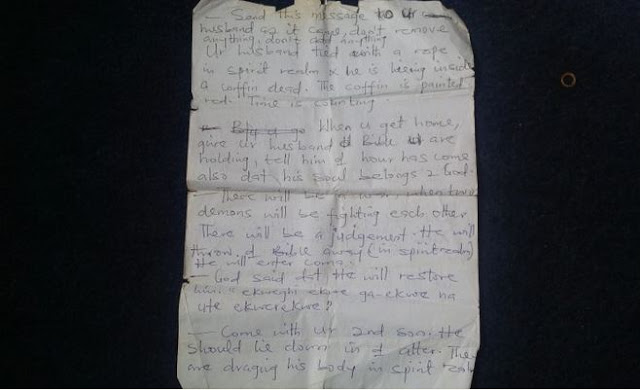 — Send this message to Ur
husband as it came, don't remove
anything, don't add anything
Ur husband tied with a rope
in spirit realm & he is being inside
a coffin dead. The coffin is painted
red. Time is counting.
When u get home,
give ur husband d Bible u are
holding, tell him d hour has come
also dat his soul belongs 2 God.
— There will be a war, when two
demons will be fighting each other
There will be a judgement. He will
throw d Bible away (in spirit realm)
He will enter coma.
— God said dat He will restore
him. "ekweghi ekwe ga-ekwe na
ute ekwerekwe?
— Come with Ur 2nd son. He
should lie down in d alter. They
are draging his body in spirit realm